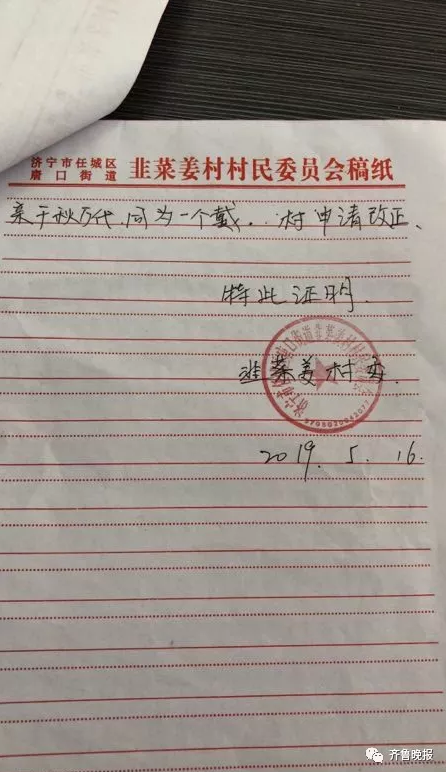 济宁市任城区
唐口街道
韭菜姜村村民委员会稿纸
亲千秋万代,同为一个戴..村申请改正、
特此证明.
韭菜姜村委.
2019.5.16
齐鲁晚报